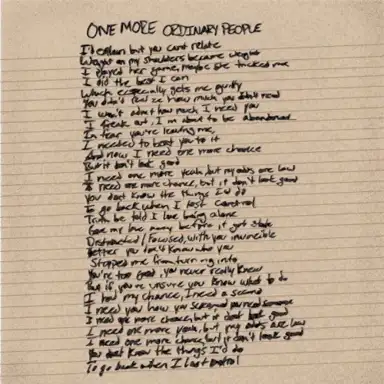 ONE MORE ORDINARY PEOPLE
I'd explain but you cant relate
Weight on my shoulders became weight
I played her game, maybe she tricked me
I did the best I can
Which especially gets me guilty
You didn't realize how much you didn't need
I won't admit how much I need you
I freak out, I'm about to be abandoned
In fear you're leaving me,
I needed to beat you to it
And now I need one more chance
But it don't look good
I need one more yeah, but my odds are low
I need one more chance, but it don't look good
You dont know the things I'd do
To go back when I lost control
Truth be told I love being alone
Gave my love away before it got stale
Distracted / Focused, with you invincible
Better you don't know who you
Stopped me from turning into
You're too good, you never really knew
But if you're unsure you know what to do
I had my chance, I need a second
I need you how you screamed you need someone
I need one more chance, but it dont look good
I need one more yeah, but my odds are low
I need one more chance, but it don't look good
You dont know the things I'd do
To go back when I lost control